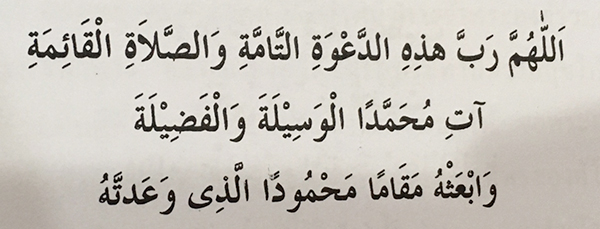 اَللّٰهُمَّ رَبَّ هذِهِ الدَّعْوَةِ التَّامَّةِ وَالصَّلاَةِ الْقَائِمَةِ
آتِ مُحَمَّدًا الْوَسِيْلَةَ وَالْفَضِيْلَةَ
وَابْعَثْهُ مَقَامًا مَحْمُودًا الَّذِى وَعَدتَّهُ